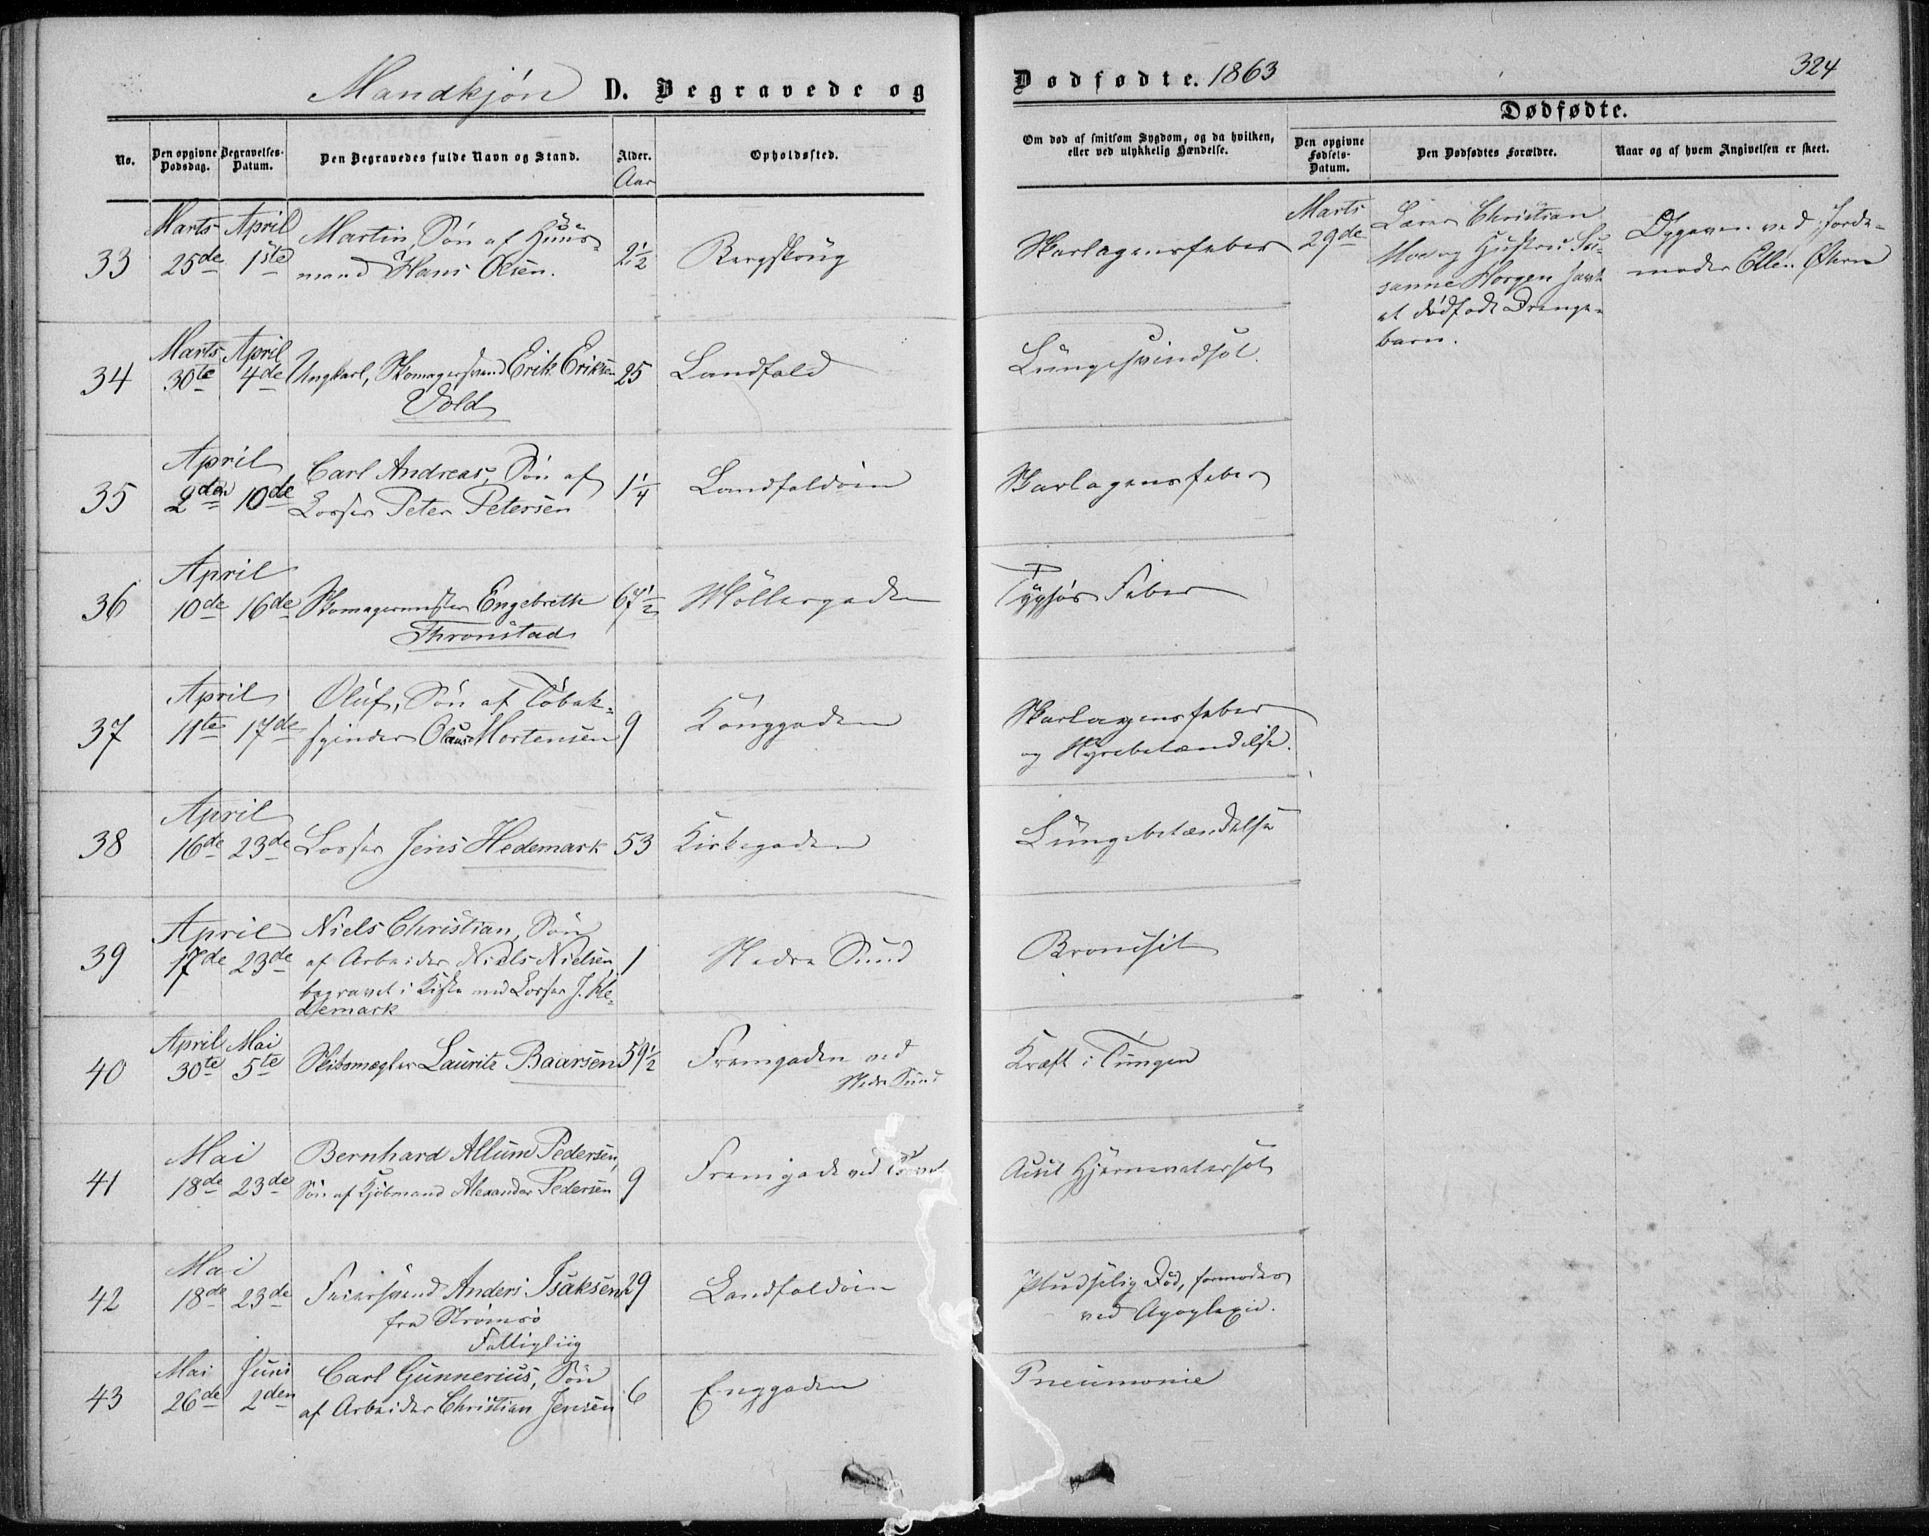 Mandkjøn D. Begravede og
Dødfødte. 1863
324
Dødfødte.
No.
Den opgivne Dødsdag.
Begravelses-Datum.
Den Begravedes fulde Navn og Stand.
Alder.
Aar
Opholdssted.
Om død af smitsom Sygdom, og da hvilken, eller ved ulykkelig Hændelse.
Den opgivne Fødsels-Datum.
Den Dødfødtes Forældre.
Naar og af hvem Angivelsen er skeet.
33 Marts 25de April 1ste
Martin, Søn af Huus-
mand Hans Olsen.
2½ Bergskoug Skarlagensfeber
Marts 29de
Lærer Christian
Moe og Hustru Su-
sanne Horgen havt
et dødfødt Drenge-
barn.
Opgaven ved Jorde-
moder Ellen
34 Marts 30te April 4de
Ungkarl, Skomagersvend Erik Eriksen
Vold
25 Landfald Lungesvindsot.
35 April 2den 10de
Carl Andreas, Søn af
Losser Peter Petersen
1¼ Landfaldøen Skarlagensfeber
36 April 10de 16de
Skomagermester Engebreth
Thronstad
67½ Møllergaden Typhøs Feber
37 April 11te 17de
Oluf, Søn af Tobak-
spinder Olaus Mortensen
9 Konggaden Skarlagensfeber
og Nyrebetændelse.
38 April 16de 23de
Losser Jens Hedemark
53 Kirkegaden Lungebetændelse
39 April 17de 23de
Niels Christian, Søn
af Arbeider Niels Nielsen,
begravet i Kiste med Losser J. He-
demark
1 Nedre Sund Bronchit
40 April 30te Mai 5te
Skibsmægler Laurits Baarsen
59½ Fremgaden ved
Nedre Sund
Kræft i Tungen
41 Mai 18de 23de
Bernhard Allum Pedersen,
Søn af Kjøbmand Alexander Pedersen
9 Fremgade ved Torvet Acut Hjernevatersot
42 Mai 18de 23de
Feiersvend Anders Isaksen
fra Strømsø
Fattigliig
29 Landfaldøen Pludselig Død, formodes
ved Apoplexie.
43 Mai 26de Juni 2den
Carl Gunnerius, Søn
af Arbeider Christian Jensen
6 Enggaden Pneumonie